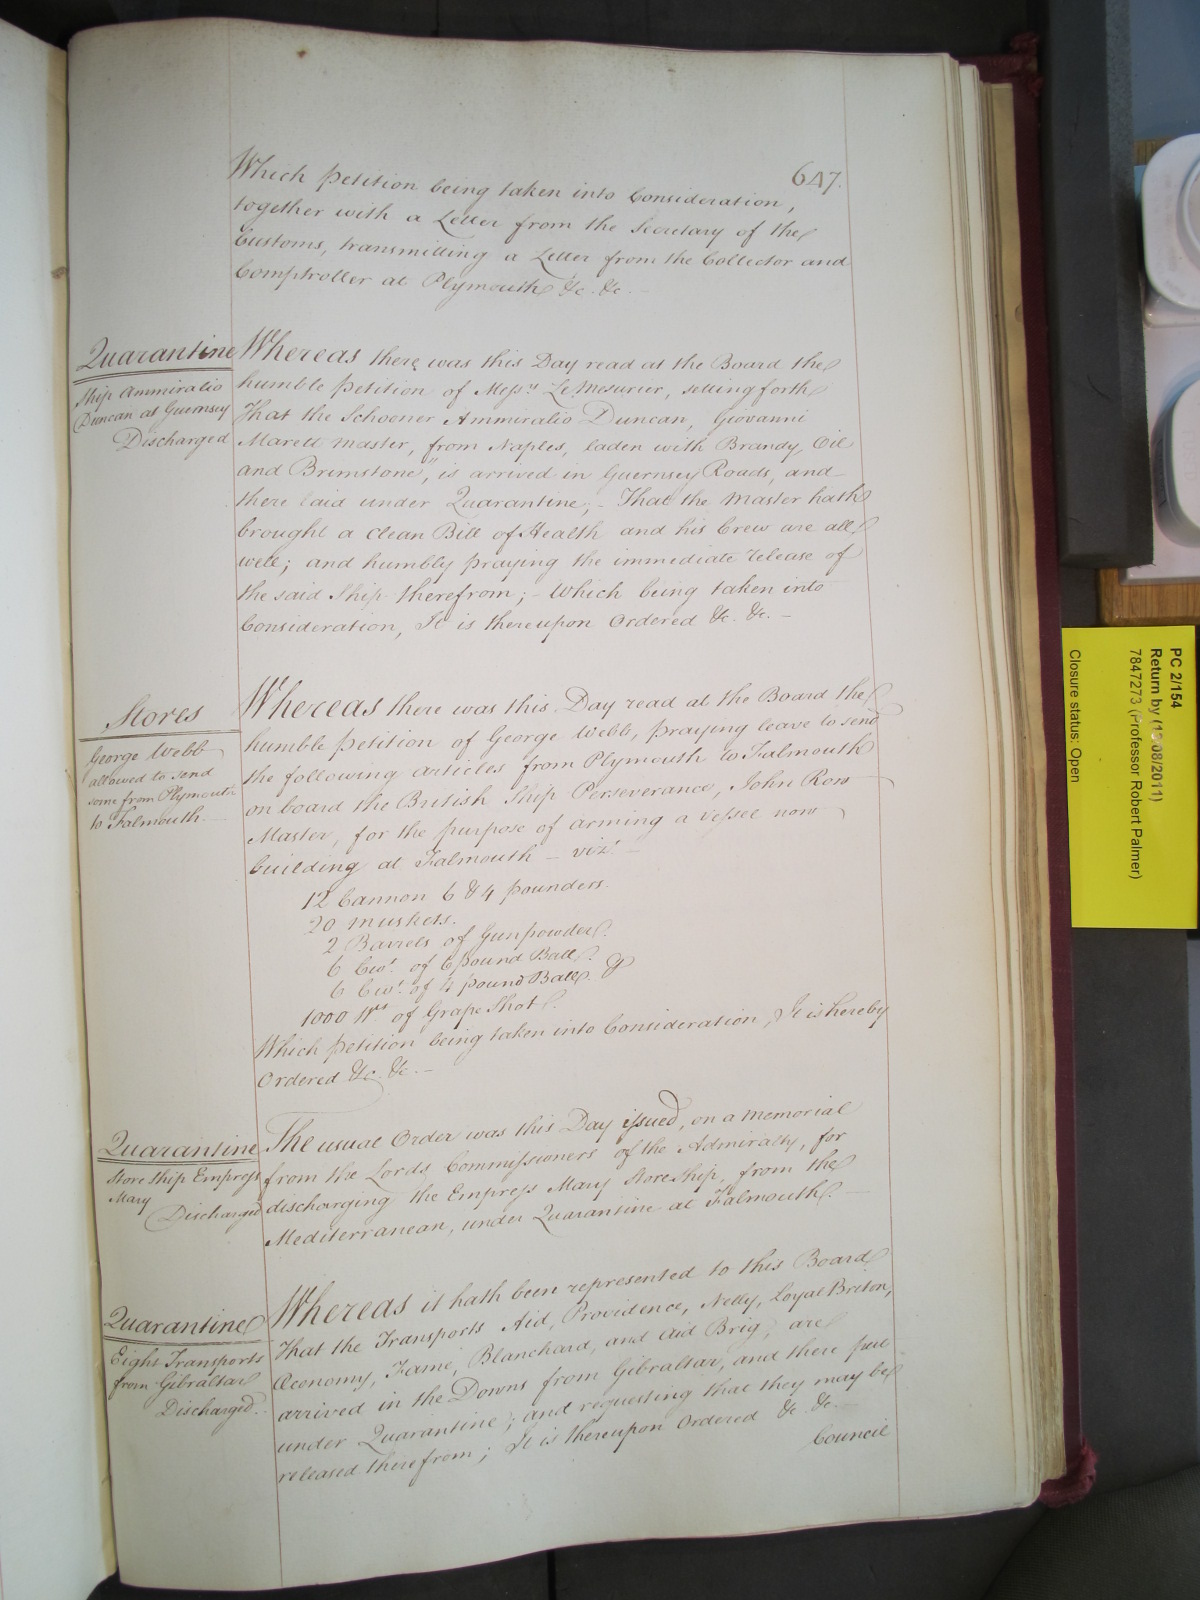 647.
Which Petition being taken into Consideration,
together with a Letter from the Secretary of the
Customs, transmitting a Letter from the Collector and
Comptroller at Plymouth &c. &c. —
Quarantine
Ship Ammiralio
Duncan at Guernsey
Discharged
Whereas there was this Day read at the Board the
humble Petition of Messrs. Le Mesurier, setting forth
That the Schooner Ammiralio Duncan, Giovanni
Marett Master, from Naples, laden with Brandy, Oil
and Brimstone, is arrived in Guernsey Roads, and
there laid under Quarantine; – That the Master hath
brought a clean Bill of Health and his Crew are all
well; and humbly praying the immediate release of
the said Ship therefrom; – Which being taken into
Consideration, It is thereupon Ordered &c. &c. –
Stores
George Webb
allowed to send
some from Plymouth
to Falmouth.
Whereas there was this Day read at the Board the
humble Petition of George Webb, praying leave to send
the following articles from Plymouth to Falmouth
on board the British Ship Perseverance, John Row
Master, for the purpose of arming a vessel now
building at Falmouth – vizt. –
12 Cannon 6 & 4 pounders.
20 Muskets.
2 Barrels of Gunpowder.
6 Cwt. of 6 pound Ball.
6 Cwt. of 4 pound Ball. &
1000 Wt. of Grape Shot.
Which Petition being taken into Consideration, It is hereby
Ordered &c. &c. –
Quarantine
Store Ship Empress
Mary
Discharged
The usual Order was this Day issued, on a Memorial
from the Lords Commissioners of the Admiralty, for
discharging the Empress Mary Store Ship, from the
Mediterranean, under Quarantine at Falmouth. —
Quarantine
Eight Transports
from Gibraltar
Discharged.
Whereas it hath been represented to this Board
That the Transports Aid, Providence, Nelly, Loyal Briton,
Œconomy, Fame, Blanchard, and Aid Brig, are
arrived in the Downs from Gibraltar, and there put
under Quarantine; and requesting that they may be
released therefrom; It is thereupon Ordered &c. &c. —
Council
PC 2/154
Return by (13/08/2011)
7847273 (Professor Robert Palmer)
Closure status: Open